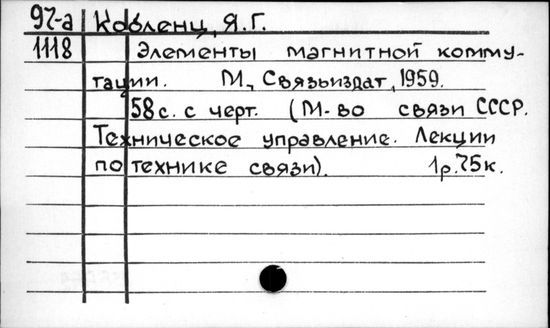 97-а Кобленц, Я.Г.
1118 Элементы магнитной комму-
тации. М., Связьиздат, 1959.
58 с. с черт. (М-во связи СССР.
Техническое управление. Лекции
по технике связи). 1р.75к.